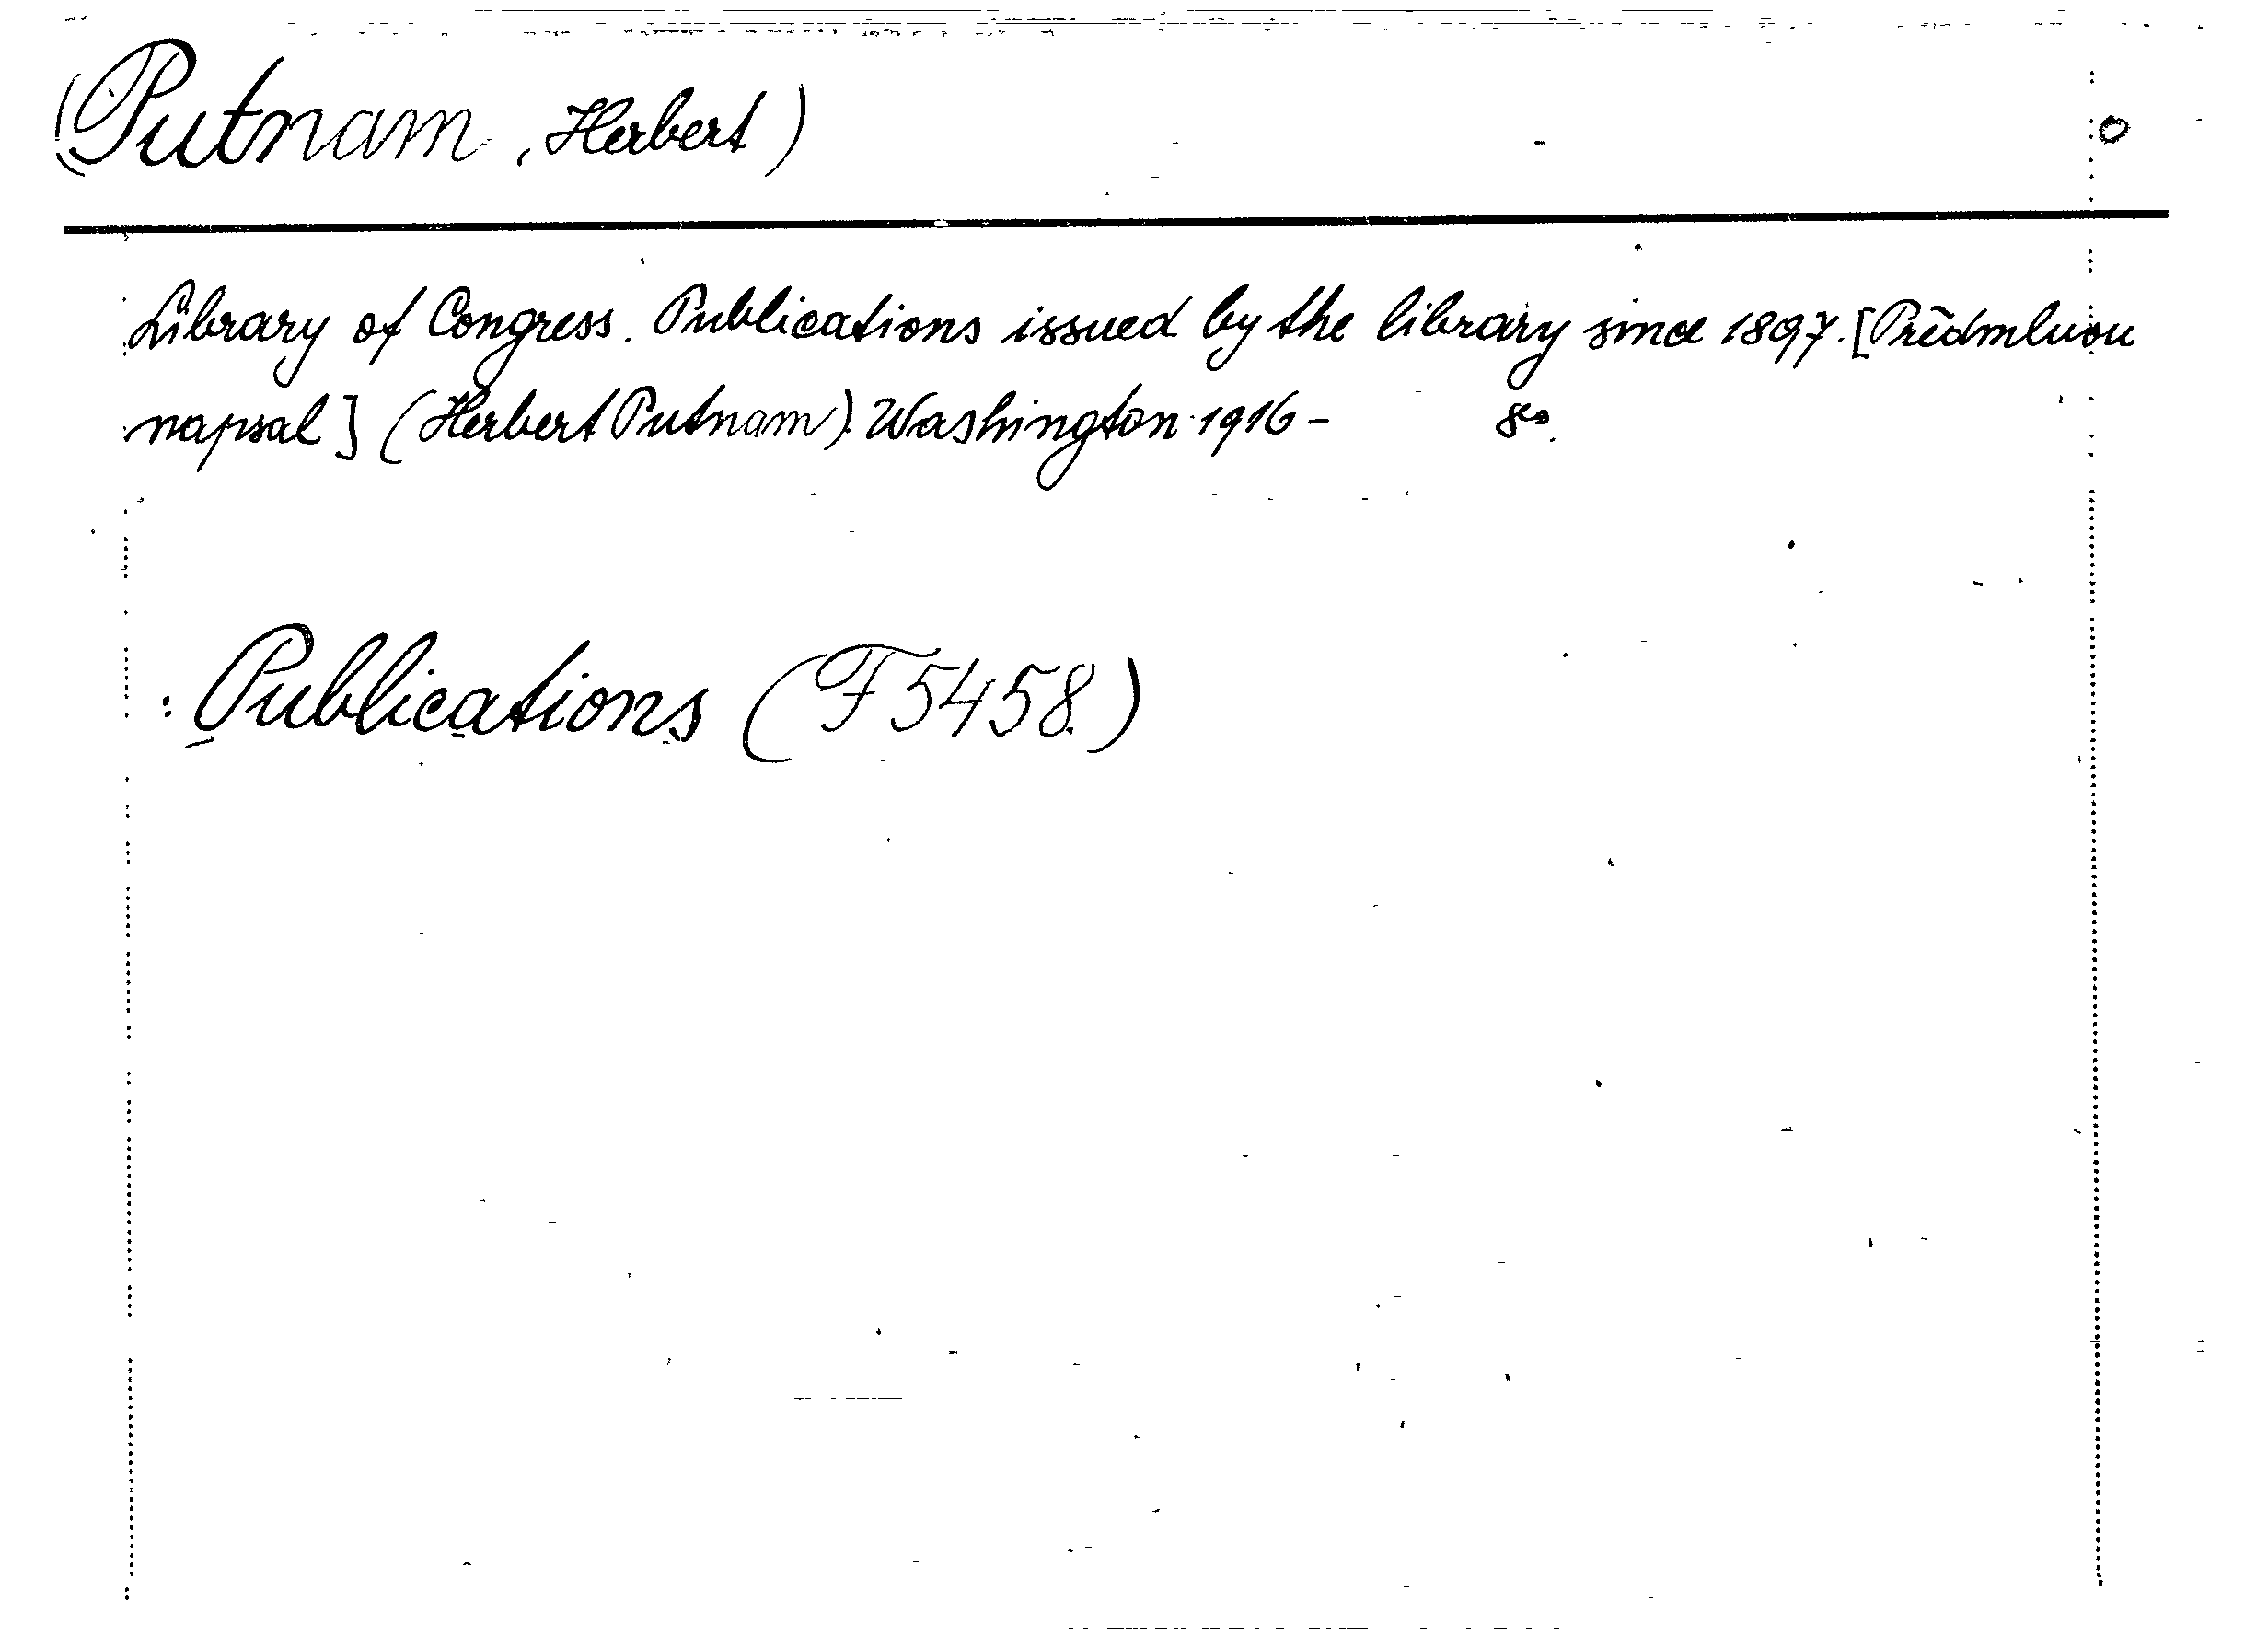 (Putnam, Herbert) o
Library of Congress. Publications issued by the library since 1897. [Předmluvu
napsal] (Herbert Putnam). Washington 1916 - 8º.
: Publications (F 5458.)